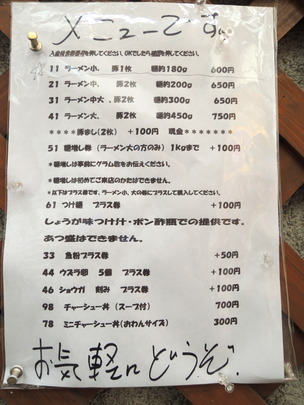 メニューです。
入金後食券番号を押してください、OKでしたら確認を押してください、
11 ラーメン小、 豚1枚 麺約180g 600円
21 ラーメン中、 豚2枚 麺約200g 650円
31 ラーメン中大 、豚2枚 麺約300g 650円
41 ラーメン大、 豚2枚 麺約450g 750円
****豚まし(2枚) +100円 現金*******
51 麺増し券(ラーメン大の方のみ)1Kgまで +100円
*麺増しは事前にグラム数をお伝えください。
*麺増しは初めてご来店のかたはできません。
*以下はプラス券です、ラーメン小、大の券にプラスして購入してください、
61 つけ麺 プラス券 +100円
しょうが味つけ汁・ポン酢瓶での提供です。
あつ盛はできません。
33 魚粉プラス券 +50円
44 ウズラ卵 5個 プラス券 +100円
46 ショウガ 刻み プラス券 +100円
98 チャーシュー丼(スープ付) 700円
78 ミニチャーシュー丼(おわんサイズ) 300円
お気軽にどうぞ、